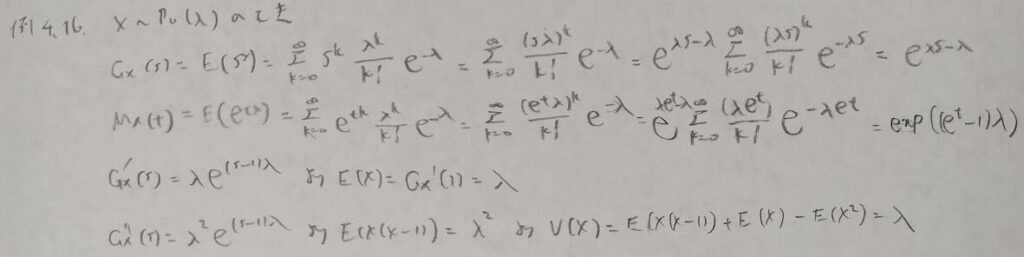 例4.16. X ~ Po(λ) のとき
Gx(s) = E(s^x) = Σ_{k=0}^{∞} s^k λ^k/k! e^{-λ} = Σ_{k=0}^{∞} (sλ)^k/k! e^{-λ} = e^{λs-λ} Σ_{k=0}^{∞} (λs)^k/k! e^{-λs} = e^{λs-λ}
Mx(t) = E(e^{tx}) = Σ_{k=0}^{∞} e^{tk} λ^k/k! e^{-λ} = Σ_{k=0}^{∞} (e^tλ)^k/k! e^{-λ} = e^{λe^t-λ} Σ_{k=0}^{∞} (λe^t)/k! e^{-λe^t} = exp((e^t-1)λ)
Gx'(s) = λe^{(s-1)λ} より E(X) = Gx'(1) = λ
Gx''(s) = λ^2 e^{(s-1)λ} より E(X(X-1)) = λ^2 より V(X) = E(X(X-1)) + E(X) - E(X^2) = λ